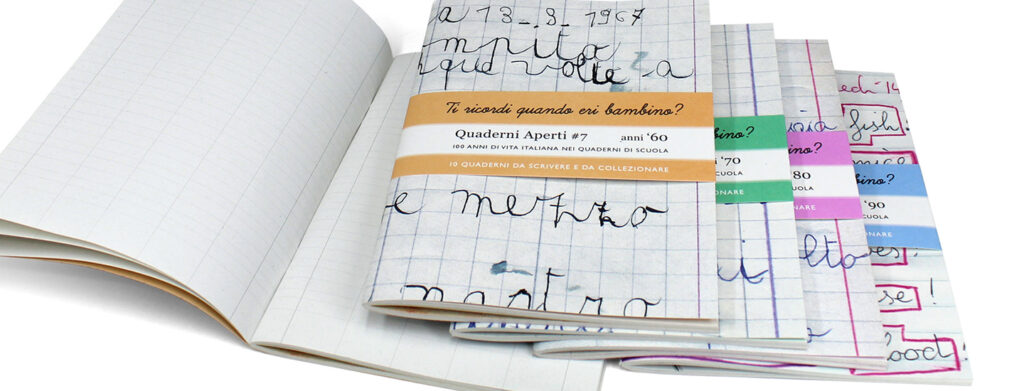 a 13-9-1967
mpito
que volte a
Ti ricordi quando eri bambino?
Quaderni Aperti #7 anni '60
100 ANNI DI VITA ITALIANA NEI QUADERNI DI SCUOLA
10 QUADERNI DA SCRIVERE E DA COLLEZIONARE
e mezzo
nastro
bino?
i '70
CUOLA
NARE
bino?
80
UOLA
ONARE
lto
fish!
bino?
'90
SCUOLA
ZIONARE
se!
ood!